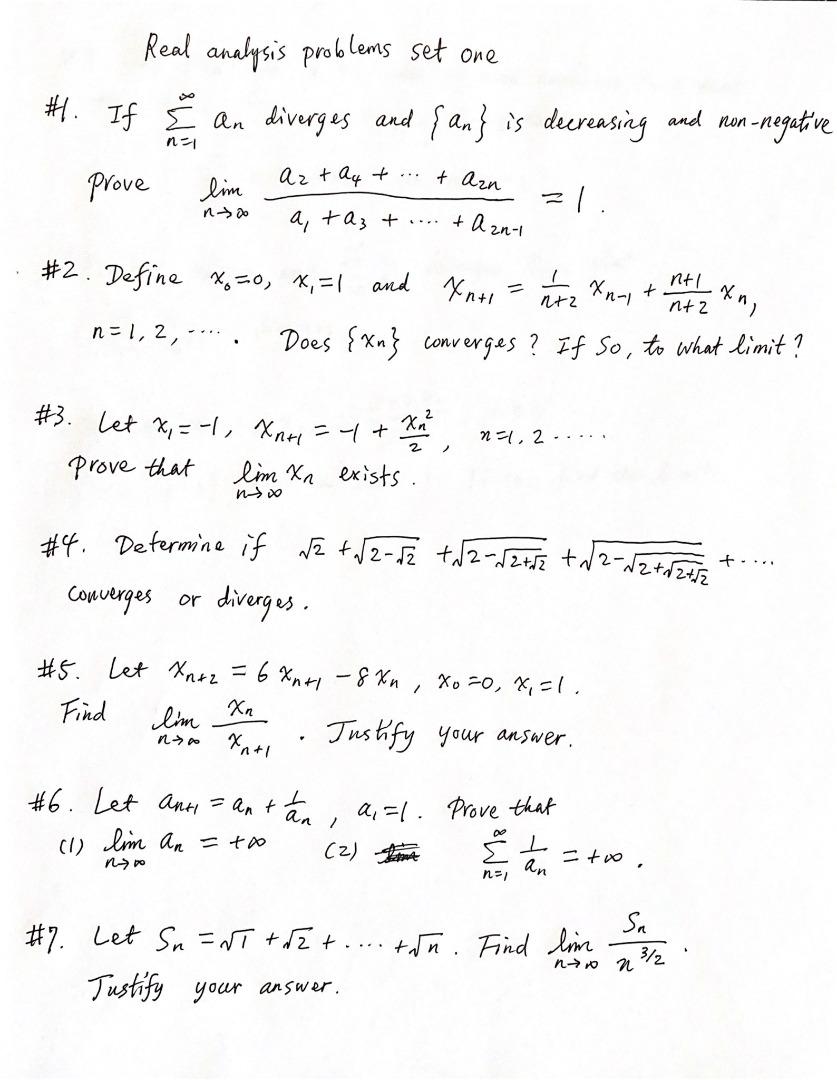 Real analysis problems set one
#1. If ∑_{n=1}^{∞} aₙ diverges and {aₙ} is decreasing and non-negative
Prove lim_{n→∞} (a₂ + a₄ + ··· + a₂ₙ)/(a₁ + a₃ + ···· + a₂ₙ₋₁) = 1.
#2. Define x₀=0, x₁=1 and xₙ₊₁ = 1/(n+2) xₙ₋₁ + (n+1)/(n+2) xₙ,
n=1, 2, ····. Does {xₙ} converges? If So, to what limit?
#3. Let x₁=-1, xₙ₊₁ = -1 + xₙ²/2, n=1, 2 ·····
Prove that lim_{n→∞} xₙ exists.
#4. Determine if √2 + √(2-√2) + √(2-√(2+√2)) + √(2-√(2+√(2+√2))) + ····
Converges or diverges.
#5. Let xₙ₊₂ = 6xₙ₊₁ - 8xₙ, x₀=0, x₁=1.
Find lim_{n→∞} xₙ/xₙ₊₁. Justify your answer.
#6. Let aₙ₊₁ = aₙ + 1/aₙ, a₁=1. Prove that
(1) lim_{n→∞} aₙ = +∞ (2) ∑_{n=1}^{∞} 1/aₙ = +∞.
#7. Let Sₙ = √1 + √2 + ···· + √n. Find lim_{n→∞} Sₙ/n^{3/2}.
Justify your answer.